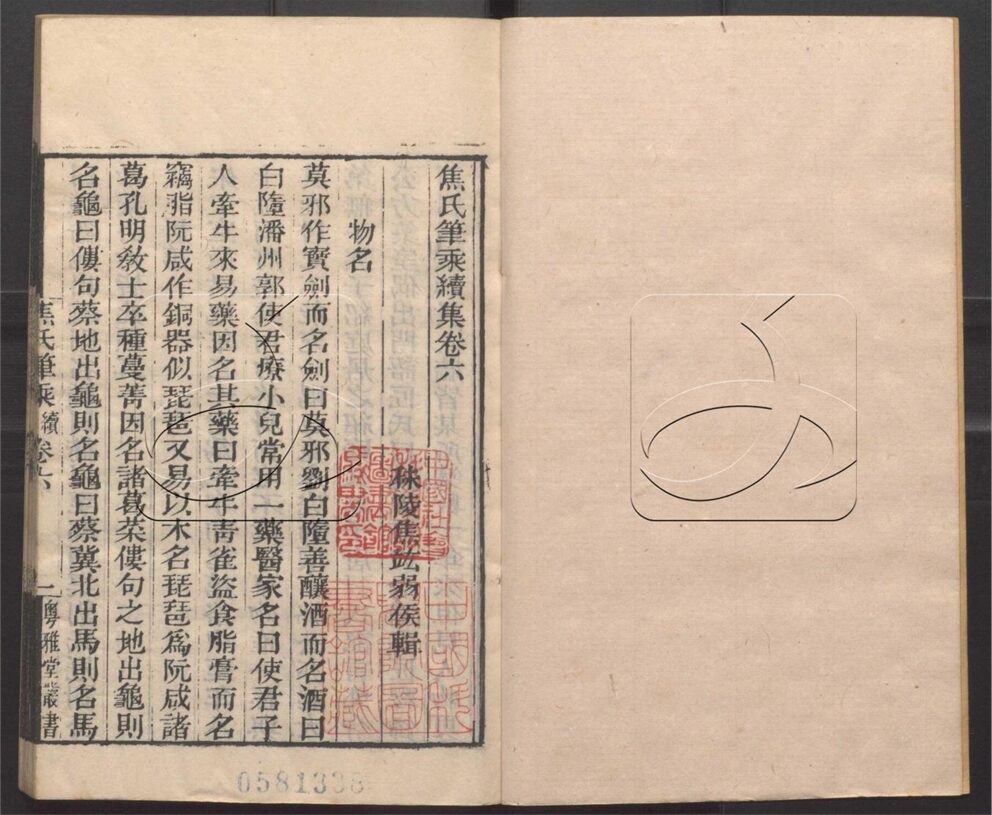 焦氏筆乘續集卷六
秣陵焦竑弱侯輯
物名
莫邪作寳劍而名劍曰莫邪劉白墮善釀酒而名酒曰
白墮潘州郭使君療小兒常用一藥醫家名曰使君子
人牽牛來易藥因名其藥曰牽牛靑雀盜食脂膏而名
竊脂阮咸作銅器似琵琶又易以木名琵琶爲阮咸諸
葛孔明敎士卒種蔓菁因名諸葛菜僂句之地出龜則
名龜曰僂句蔡地出龜則名龜曰蔡冀北出馬則名馬
焦氏筆乘續卷六
一
粵雅堂叢書
0581338